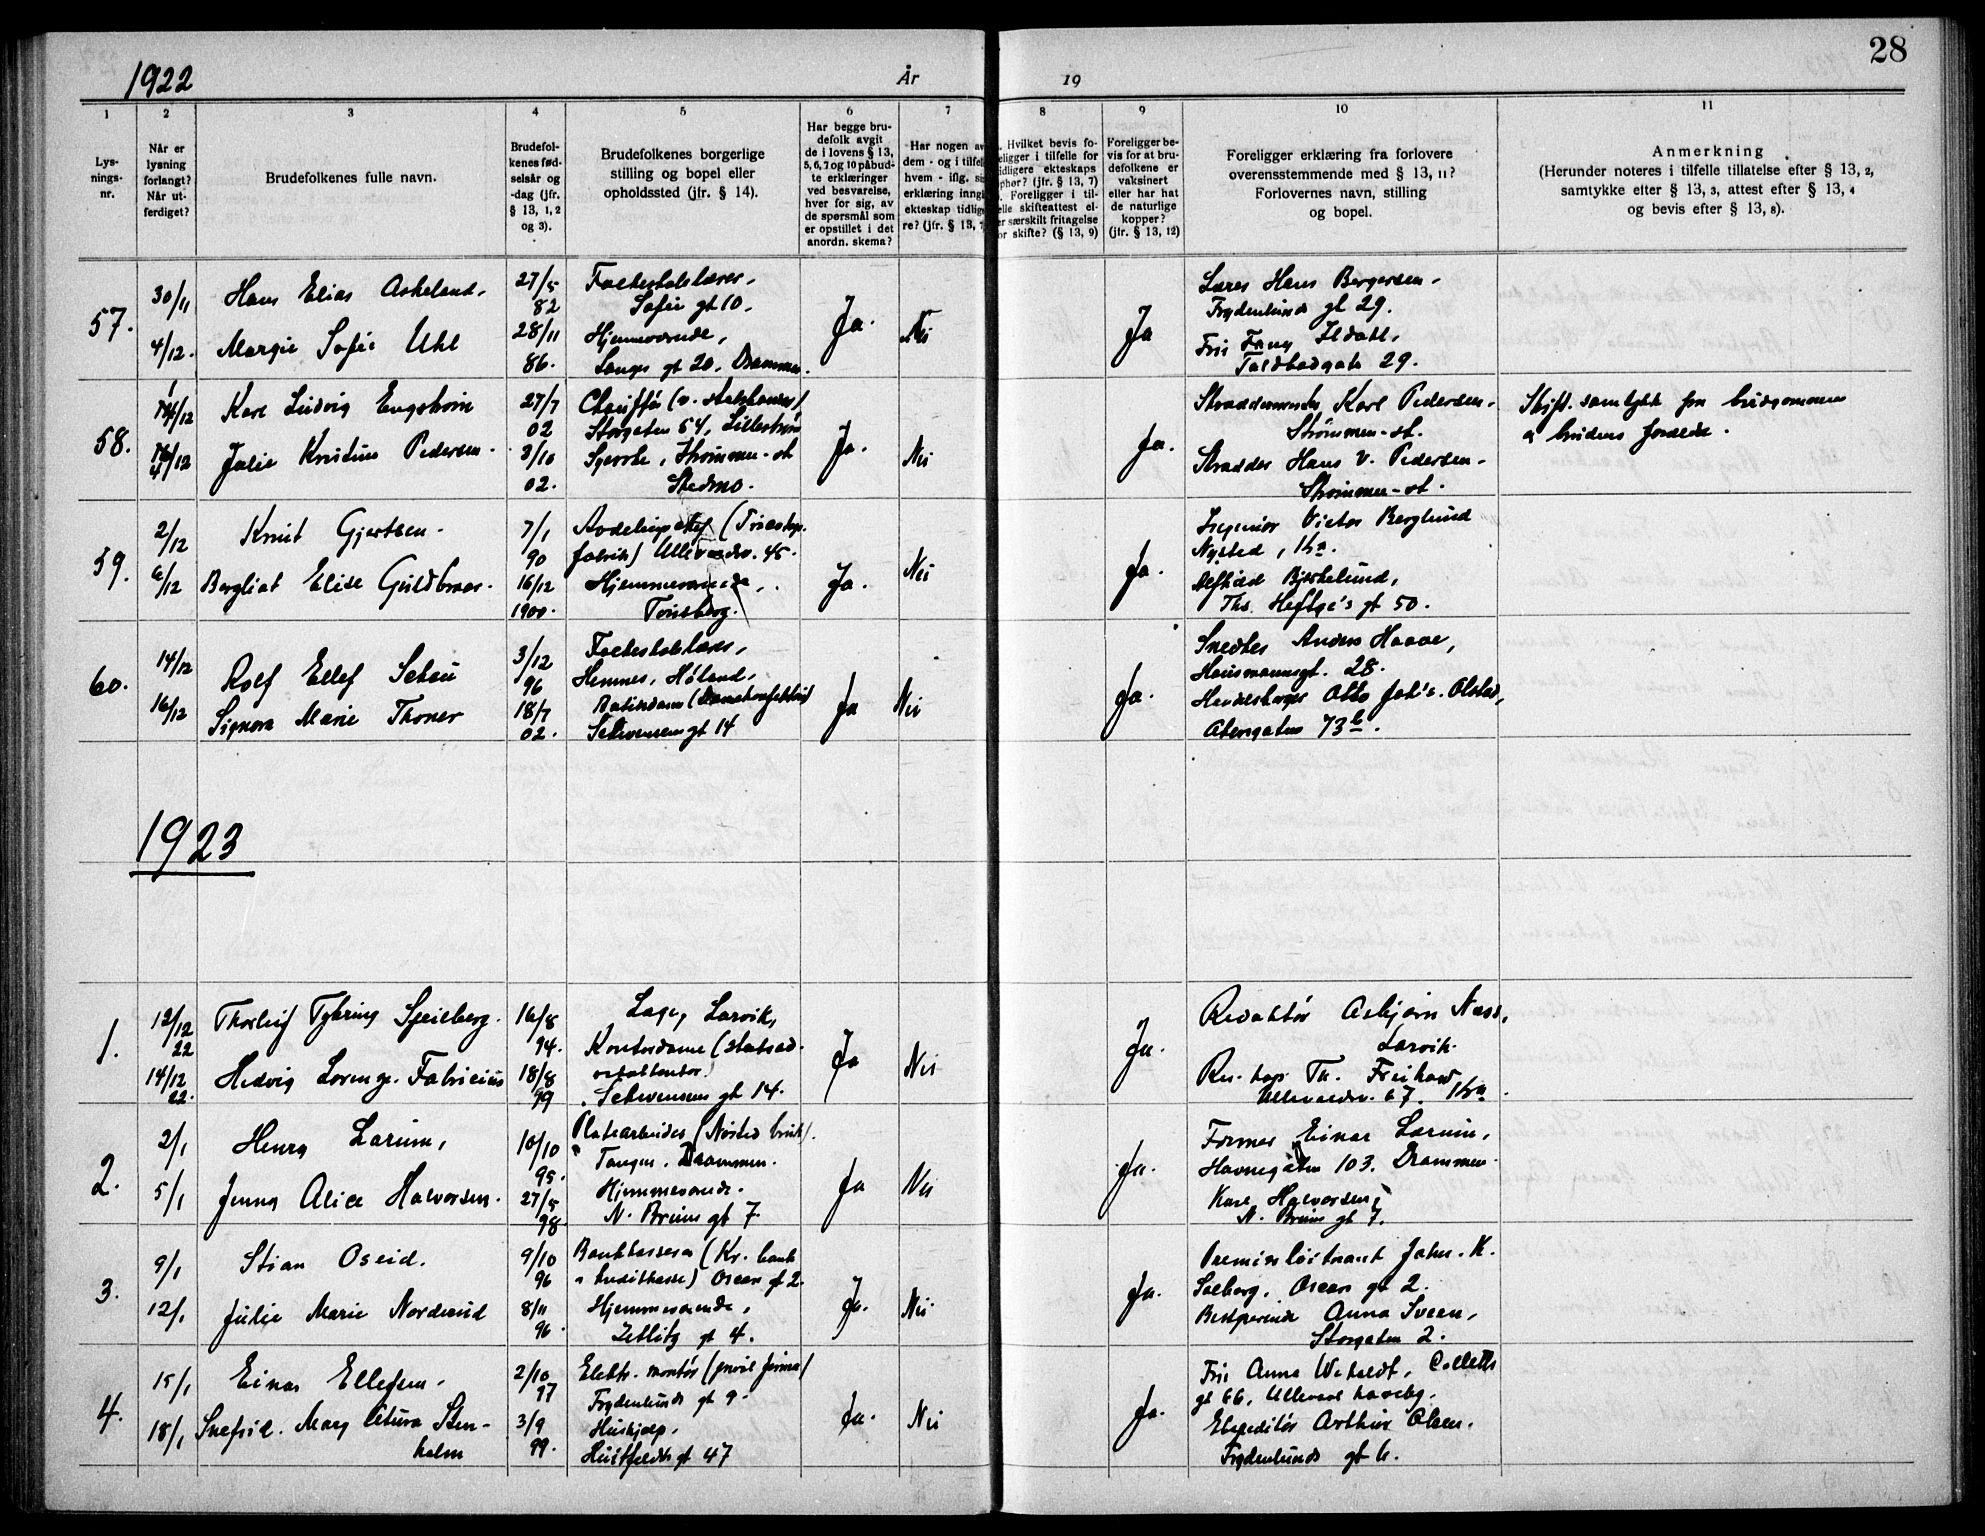 28
1922 År 19
1 2 3 4 5 6 7 8 9 10 11
Lys-
nings-
nr.
Når er
lysning
forlangt?
Når ut-
ferdiget?
Brudefolkenes fulle navn.
Brudefol-
kenes fød-
selsår og
-dag (jfr.
§ 13, 1, 2
og 3).
Brudefolkenes borgerlige
stilling og bopel eller
opholdssted (jfr. § 14).
Har begge bru-
defolk avgit
de i lovens § 13,
5, 6, 7 og 10 påbud-
te erklæringer
ved besvarelse,
hver for sig, av
de spørsmål som
er opstillet i det
anordn. skema?
Har nogen av
dem - og i tilfelle
hvem - iflg. si
erklæring inngå
ekteskap tidlige
re? (jfr. § 13, 7
Hvilket bevis fo-
religger i tilfelle for
tidligere ekteskaps
ophør? (jfr. § 13, 7)
Foreligger i til-
felle skifteattest el-
er særskilt fritagelse
or skifte? (§ 13, 9)
Foreligger be-
vis for at bru-
defolkene er
vaksinert
eller har hat
de naturlige
kopper?
(jfr. § 13, 12)
Foreligger erklæring fra forlovere
overensstemmende med § 13, 11?
Forlovernes navn, stilling
og bopel.
Anmerkning
(Herunder noteres i tilfelle tillatelse efter § 13, 2,
samtykke efter § 13, 3, attest efter § 13, 4
og bevis efter § 13, 8).
57.
30/11
4/12.
Hans Elias Askeland.
Margie Sofie Uhl
27/5
82
28/11
86.
Sofie gt 10.
Hjemmeværende,
Langes gt 20, Drammen.
Ja.
Nei
Ja
Lærer Hans Bergersen.
Frydenlunds gt 29.
Toldbodgata 29.
58.
Karl Ludvig Engstrøm
Julie Kristine Pedersen.
27/7
02
3/10
02.
Storgaten 54, Lillestrøm
Syerske, Strømmen-st
Skedsmo.
Ja.
Nei
Ja.
Karl Pedersen.
Strømmen-st.
Skrædder Hans V. Pedersen.
Strømmen-st.
Skift. samtykke fra brudgommens
59.
2/12
6/12
Knut Gjertsen.
Bergliot Elise Guldbraar.
7/1
90
16/12
1900.
Hjemmeværende,
Tønsberg.
Ja.
Nei
Ja.
Ingeniør Victor Berglund
Nysted, Kra.
Ths. Heftye's gt 50.
60.
14/12
16/12
Rolf Ellef Setsu
Signora Marie Thoner
3/12
96
18/7
02.
Hemnes, Høland,
Schwensens gt 14
Ja
Nei
Ja.
Snedker Anders Haave,
Hausmannsgt. 28.
Akersgaten 73 b.
1923
1.
12/12
22
14/12
22.
Thorleif Tybring Speilberg.
Hedvig Lorenze Fabricius
16/8
94.
18/8
99
Læge, Larvik,
Kontordame
Schwensens gt 14.
Ja
Nei
Ja.
Redaktør Asbjørn Næss,
Larvik.
Ullevaalsv. 67. Kra.
2.
2/1
5/1
Henry Larum,
Jenny Alice Halvorsen.
10/10
95.
27/5
98
Platearbeider (Nøsted bruk).
Tangen. Drammen.
Hjemmeværende.
N. Bruns gt 7.
Ja
Nei
Ja.
Former Einar Larum,
Havnegaten 103. Drammen.
Kare Halvorsen,
N. Bruns gt 7.
3.
9/1
12/1
Stian Oseid.
Julie Marie Norderud
9/10
96
8/11
96.
Bankkasserer (Kr. bank
Kreditkasse) Oscars gt 2.
Hjemmeværende,
Zetlitz gt 4.
Ja.
Nei.
Ja.
Premierløitnant Johs. K.
Solberg, Oscars gt 2.
Bestyrerinde Anna Sveen,
Storgaten 2.
4.
15/1
18/1
Einar Ellefsen.
Snefrid. Mary Stura Sten-
holm
2/10
97
3/9
99.
Elektr. montør
Frydenlunds gt 9.
Hushjelp.
Huitfeldts gt 47
Ja.
Nei
Ja.
Fru Anna Colletts
gt 66, Ullevaal haveby.
Ekspeditør Arthur Olsen.
Frydenlunds gt 6.